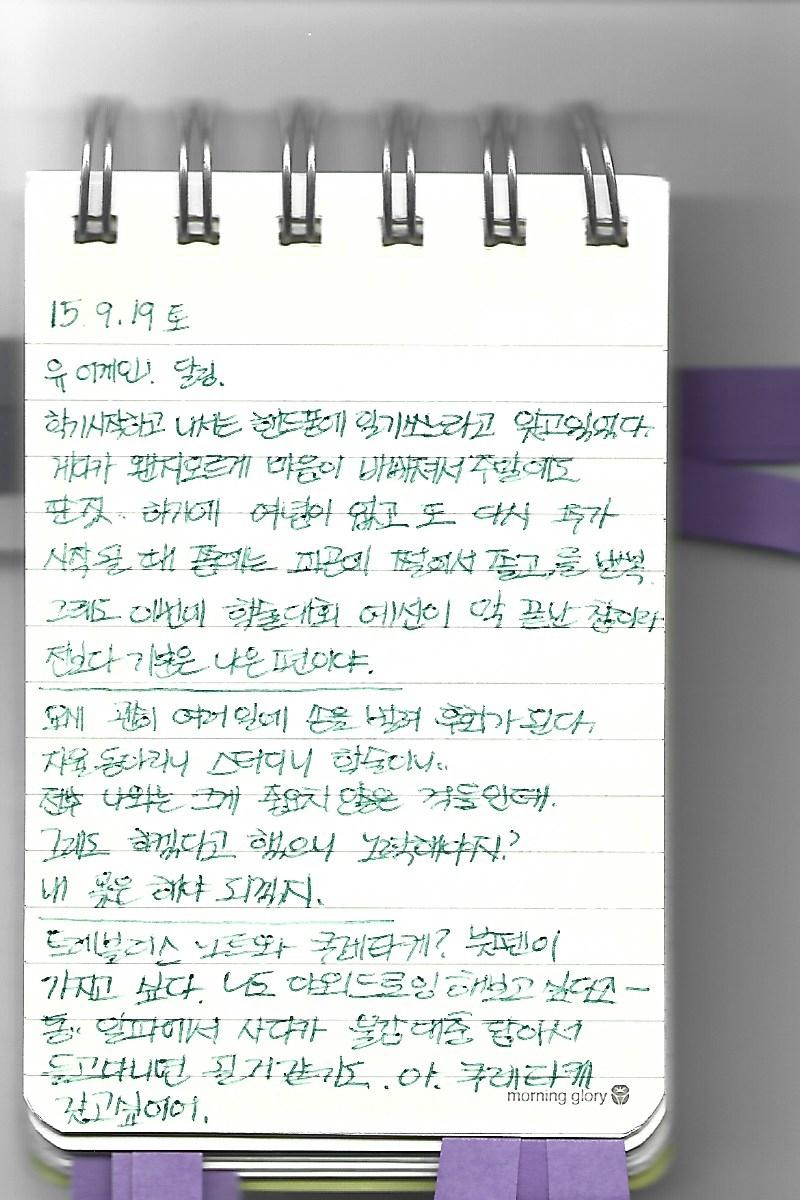 15. 9. 19 토
유 어게인! 달링.
학기시작하고 나서는 핸드폰에 일기쓰느라고 잊고있었다.
게다가 왠지모르게 마음이 바빠져서 주말에도
딴짓 하기에 여념이 없고 또 다시 주가
시작될 때 쯤에는 피곤에 쩔어서 졸고,를 반복
그래도 이번에 학술대회 예선이 막 끝난 참이라
전보다 기분은 나은 편이야.
요새 괜히 여러 일에 손을 벌려 후회가 된다.
자율동아리니 스터디니 학술이니..
전부 나와는 크게 중요치 않은 것들인데.
그래도 하겠다고 했으니 노력해야지?
내 몫은 해야 되겠지.
드레블러스 노트와 쿠레타케? 붓펜이
가지고 싶다. 나도 야외드로잉 해보고 싶다고 ー
통.. 알파에서 사다가 물감 대충 담아서
들고다니면 될거같기도. 아. 쿠레타케
갖고싶어어.
morning glory